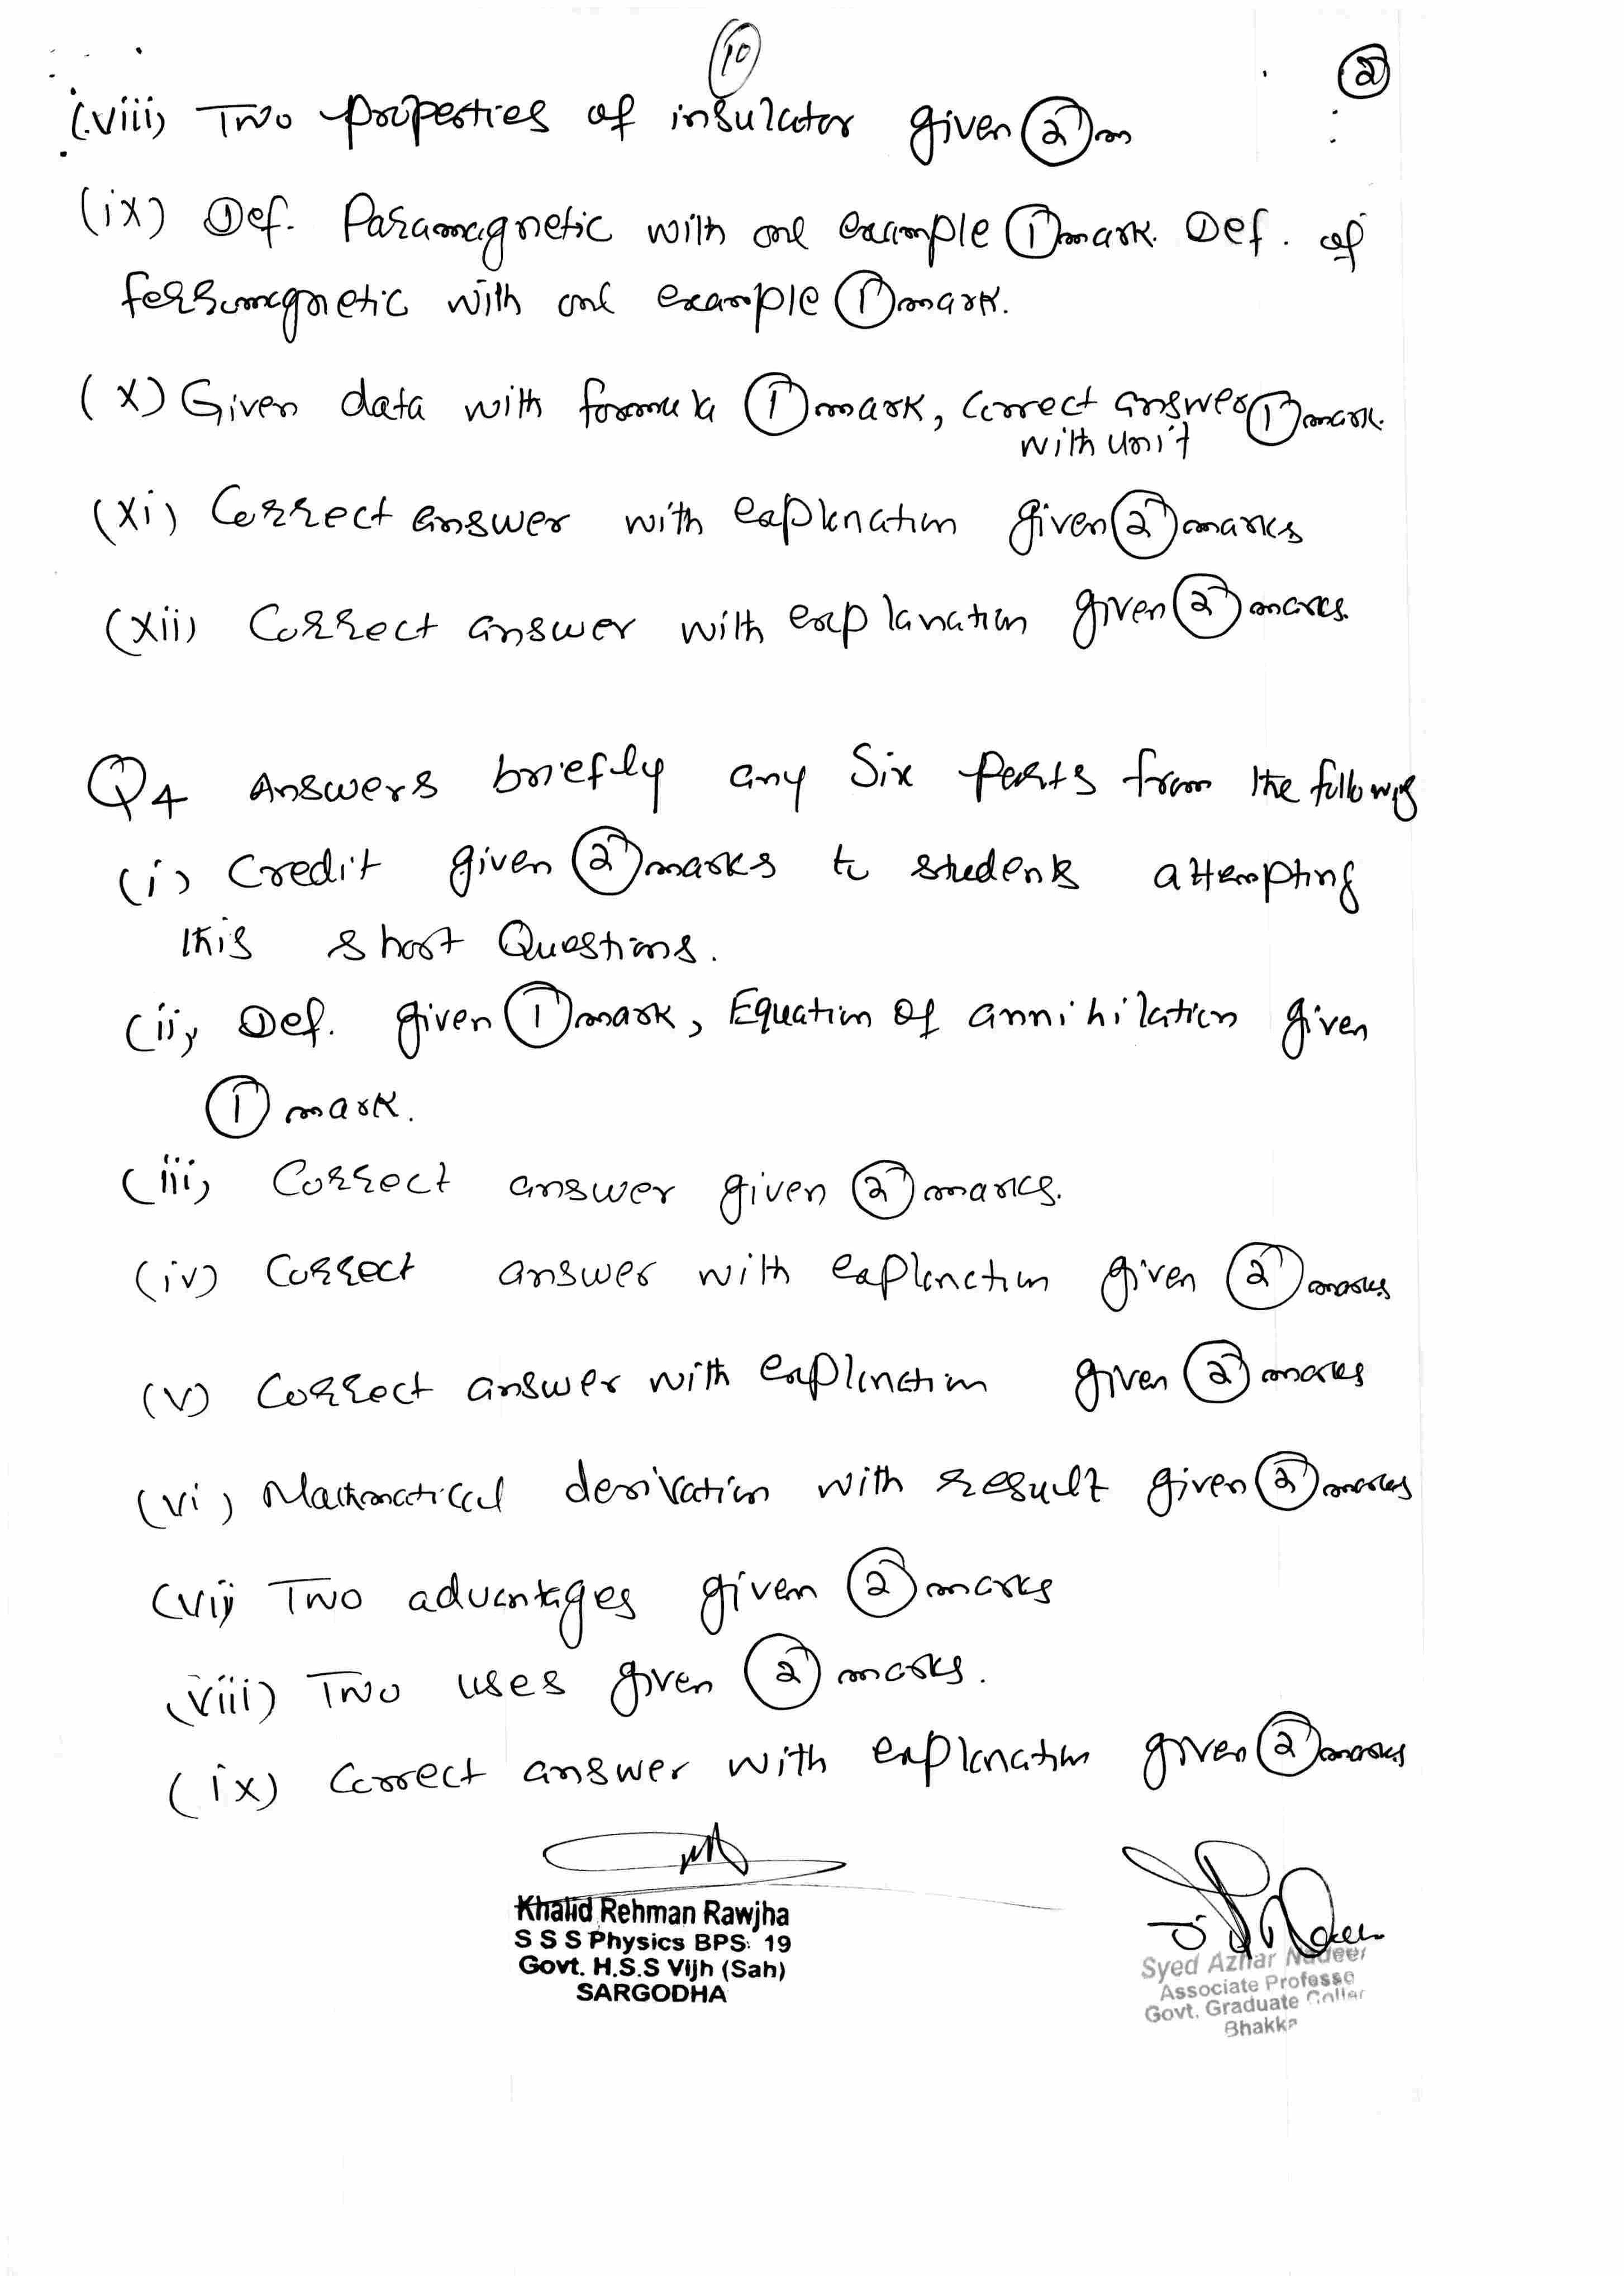 10
2
(viii) Two properties of insulator given (2) m
(ix) Def. Paramagnetic with one example (1) mark. Def. of
ferromagnetic with one example (1) mark.
(x) Given data with formula (1) mark, correct answer (1) mark.
with unit
(xi) Correct answer with explanation given (2) marks
(xii) Correct answer with explanation given (2) marks.
Q4 Answers briefly any Six parts from the following
(i) Credit given (2) marks to students attempting
this short Questions.
(ii) Def. given (1) mark, Equation of annihilation given
(1) mark.
(iii) Correct answer given (2) marks.
(iv) Correct answer with explanation given (2) marks
(v) Correct answer with explanation given (2) marks
(vi) Mathematical derivation with result given (2) marks
(vii) Two advantages given (2) marks
(viii) Two uses given (2) marks.
(ix) Correct answer with explanation given (2) marks
Khalid Rehman Rawjha
S S S Physics BPS: 19
Govt. H.S.S Vijh (Sah)
SARGODHA
Syed Azhar Nadeer
Associate Professo
Govt. Graduate Colleg
Bhakka